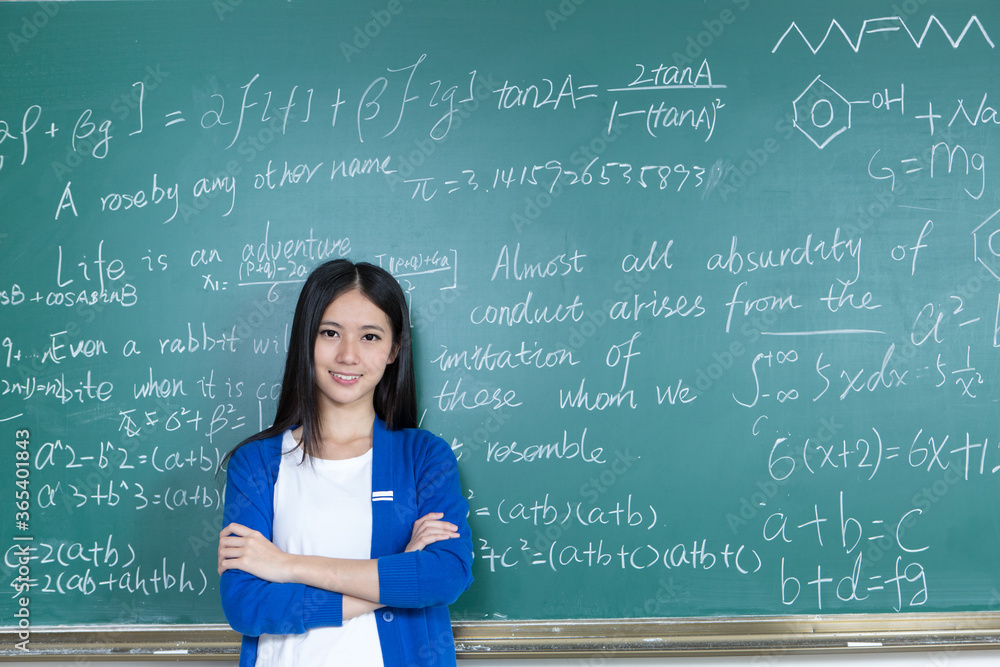 αf + βg] = αf[f] + βf[g]
tan2A = 2tanA / 1-(tanA)²
OH
+ Na
G = Mg
A rose by any other name
π = 3.14159265358993
Life is an adventure
sB + cosAsinB
x1 = (p+q)-2a / 6
Almost all absurdity of
conduct arises from the
imitation of
those whom we
resemble
Even a rabbit
bite when it is
π = σ² + β² =
a^2-b^2=(a+b)
a^3+b^3=(a+b)
=2(a+b)
=2(ab+ah+bh)
=(a+b)(a+b)
²+c²=(a+b+c)(a+b+c)
∫ 5xdx
6(x+2)=6x+1
a+b=c
b+d=fg
Adobe Stock
#365401843